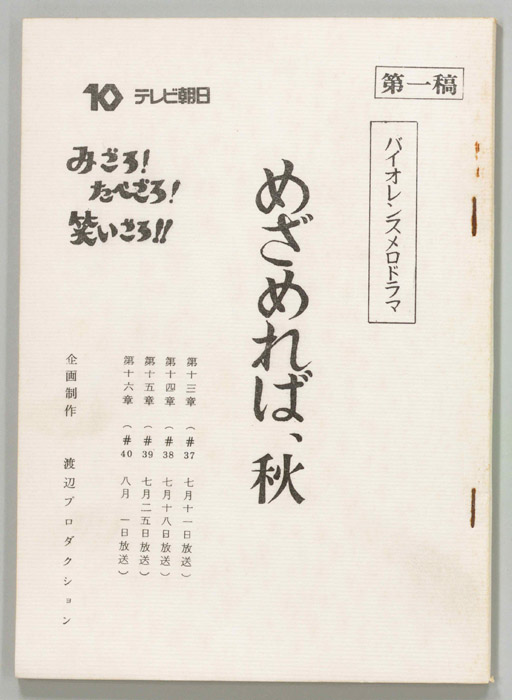 第一稿
バイオレンスメロドラマ
めざめれば、秋
10 テレビ朝日
みざろ!
たべざろ!
笑いざろ!!
第十三章 (#37 七月十一日放送)
第十四章 (#38 七月十八日放送)
第十五章 (#39 七月二五日放送)
第十六章 (#40 八月 一日放送)
企画制作 渡辺プロダクション